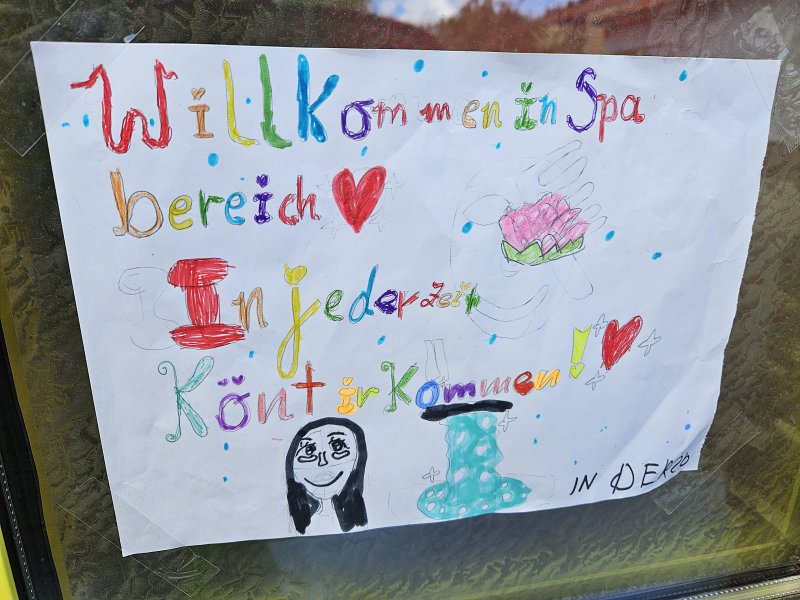 Willkommen in Spa
bereich
In jederzeit
Könt ir kommen!
IN DER